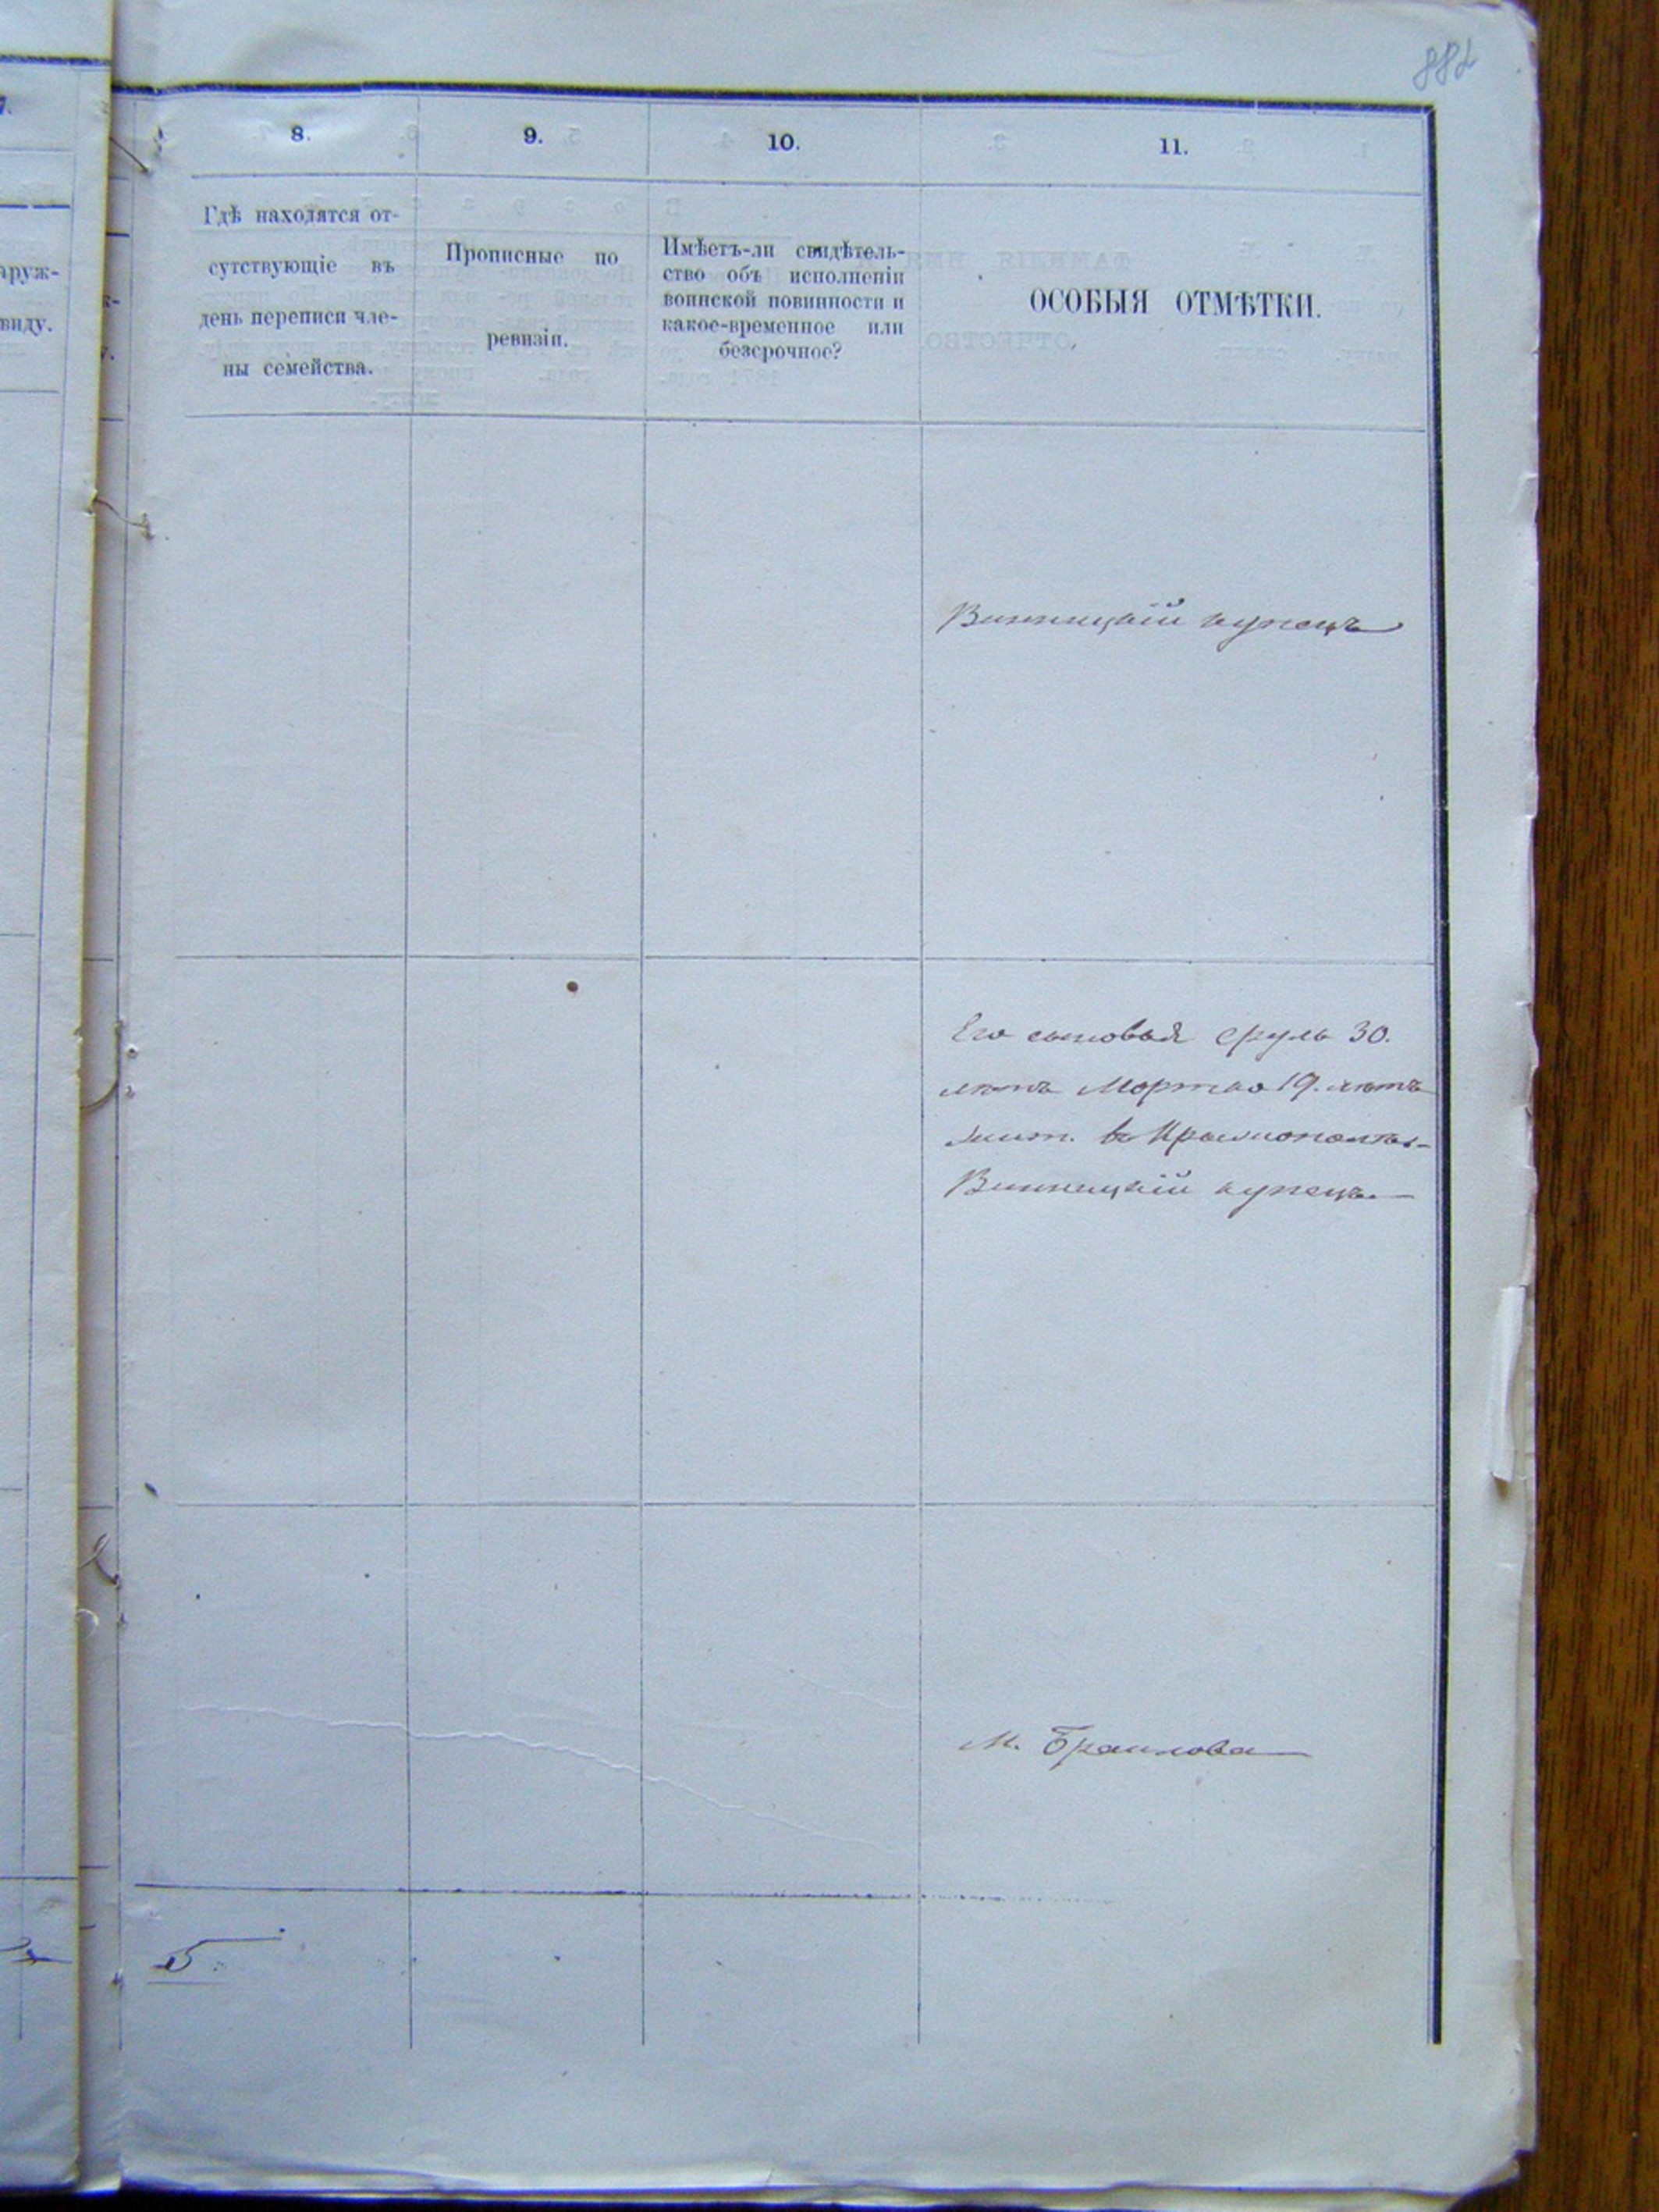 882
7.
8.
9.
10.
11.
аруж-
виду.
Гдѣ находятся от-
сутствующіе въ
день переписи чле-
ны семейства.
Прописные по
ревизіи.
Имѣетъ-ли свидѣтель-
ство объ исполненіи
воинской повинности и
какое-временное или
безсрочное?
ОСОБЫЯ ОТМѢТКИ.
Винницкій купецъ
Его сыновья Сруль 30.
лѣтъ Мортко 19. лѣтъ
жит. въ
Винницкій купецъ
М. Браилова
5.